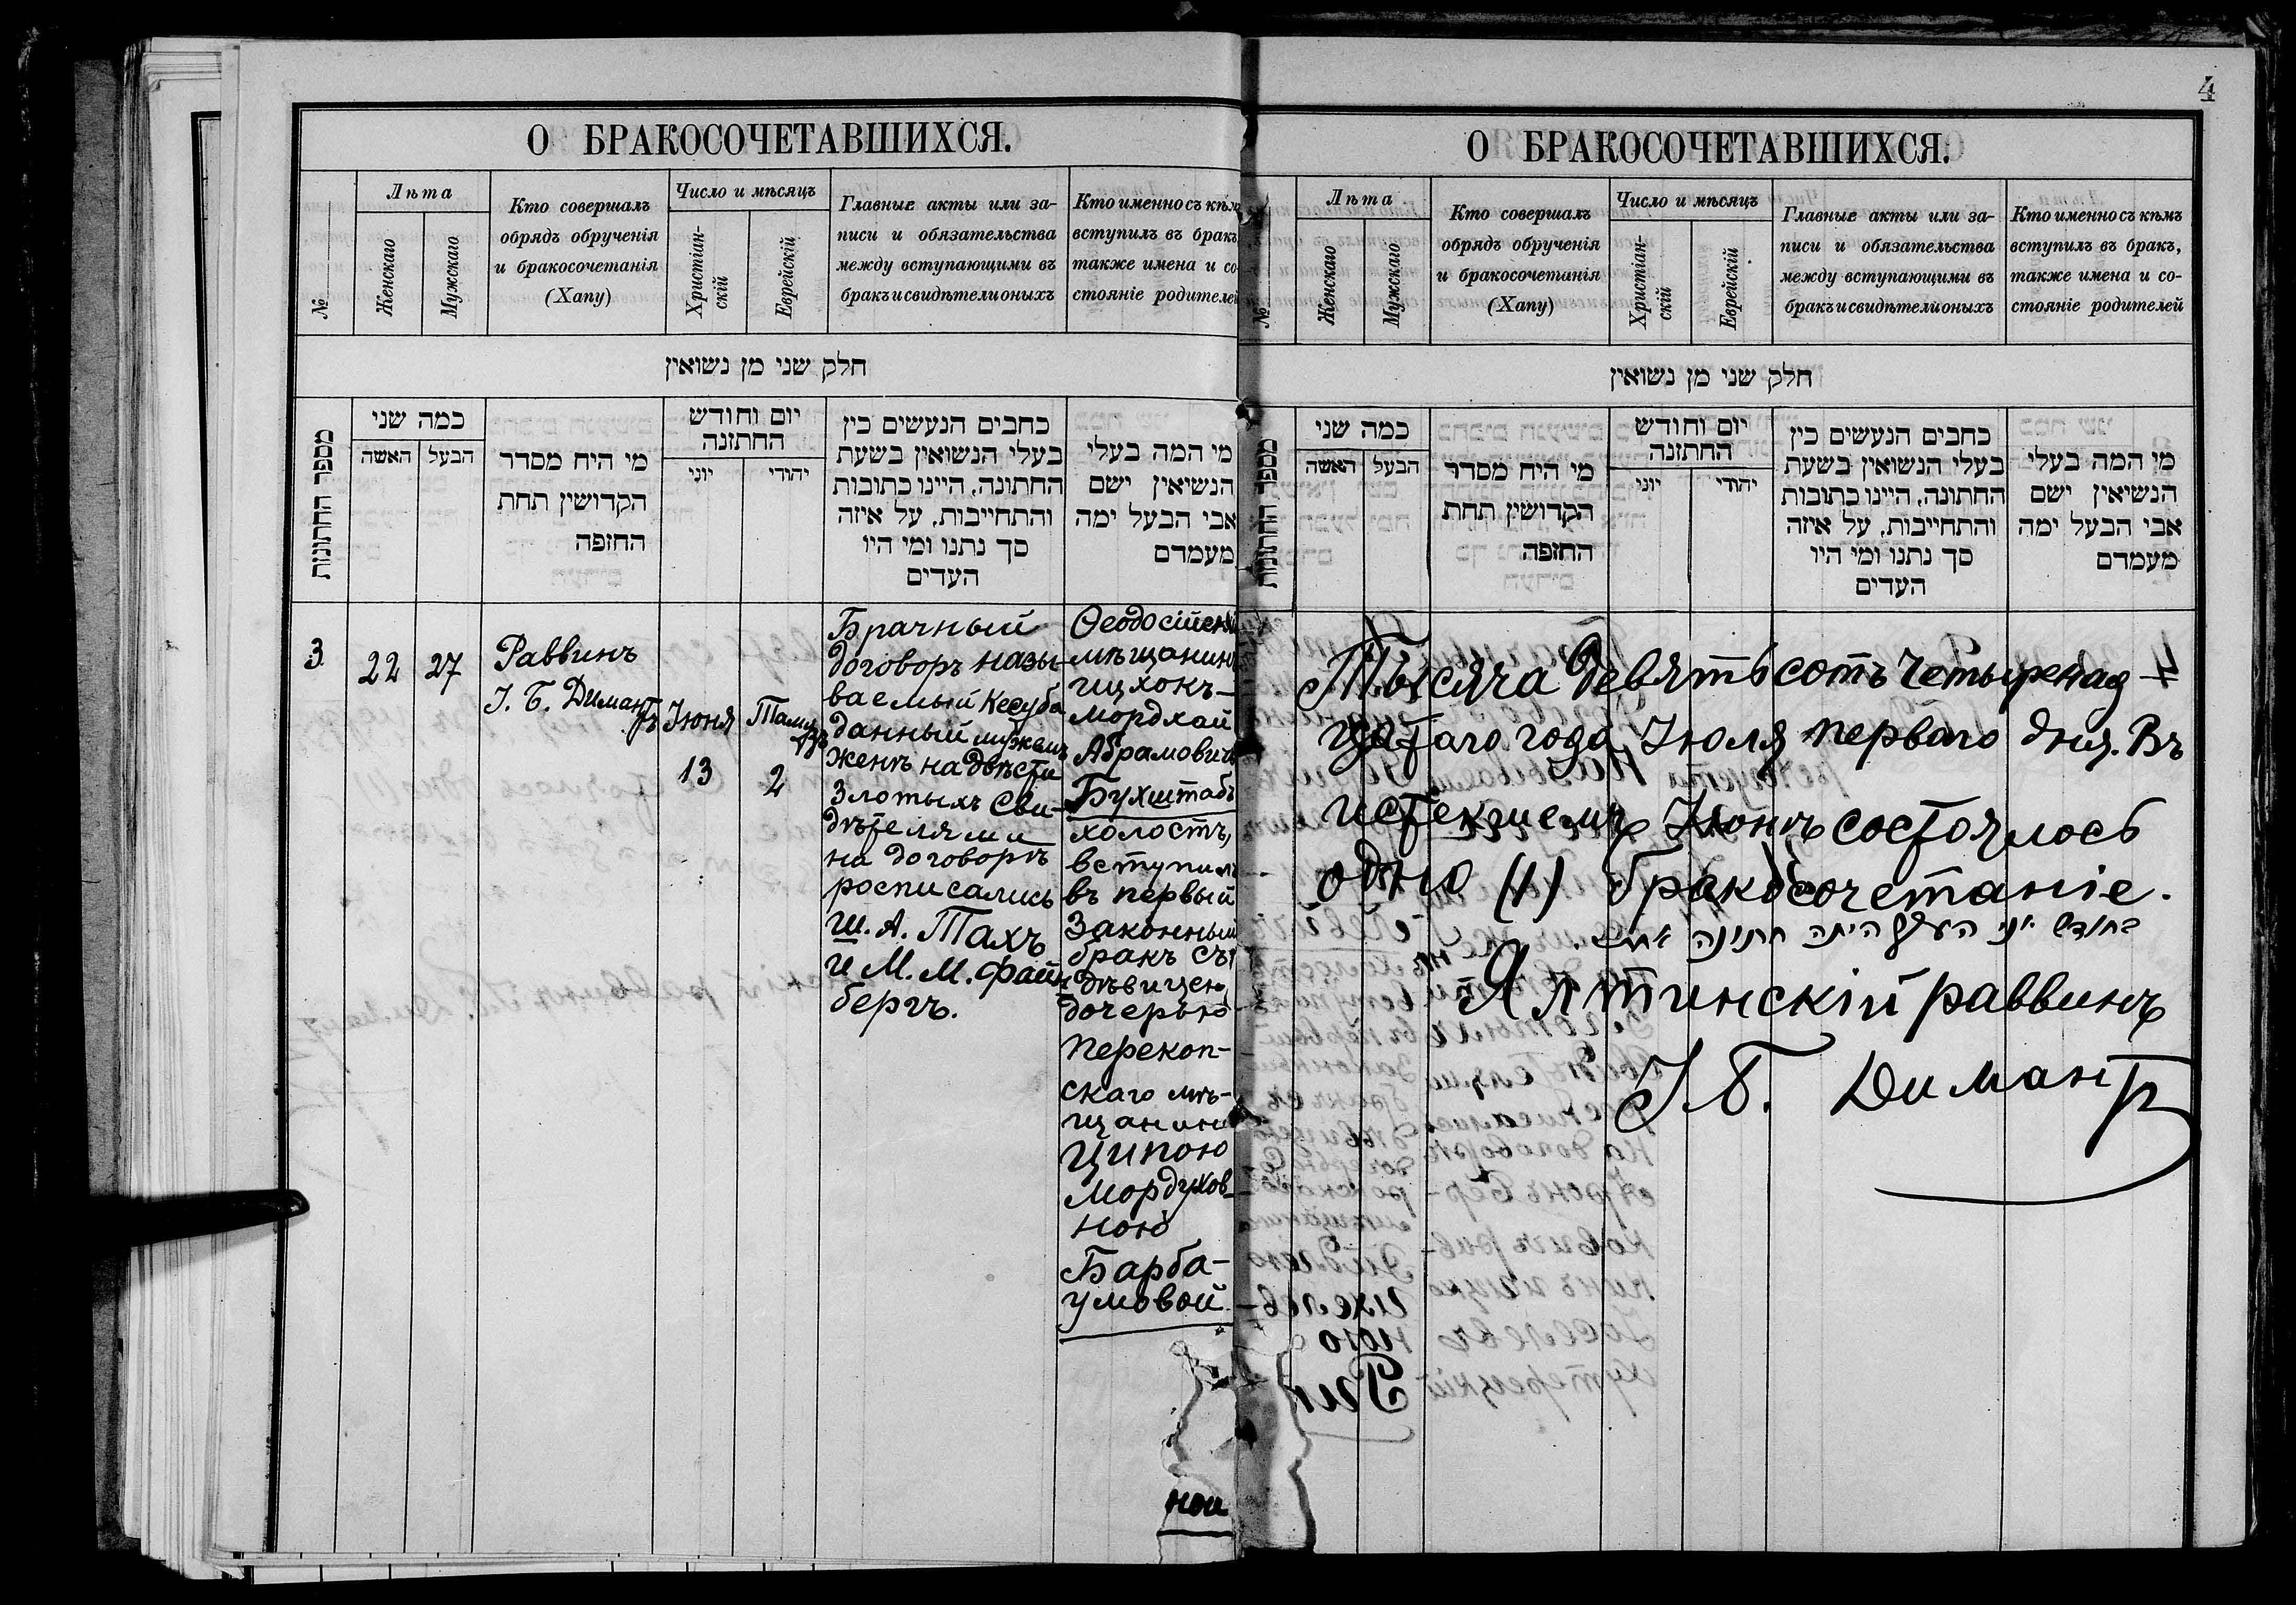 О БРАКОСОЧЕТАВШИХСЯ.
№
Лѣта
Женскаго
Мужскаго
Кто совершалъ
обрядъ обрученія
и бракосочетанія
(Хапу)
Число и мѣсяцъ
Христіан-
скій
Еврейскій
Главные акты или за-
писи и обязательства
между вступающими въ
бракъ и свидѣтели оныхъ
Кто именно съ кѣмъ
вступилъ въ бракъ
также имена и со-
стояніе родителей
חלק שני מן נשואין
מספר החתונות
כמה שני
האשה
הבעל
מי היח מסדר
הקדושין תחת
החופה
יום וחודש
החתונה
יוני
יהודי
כתבים הנעשים בין
בעלי הנשואין בשעת
החתונה, היינו כתובות
והתחייבות, על איזה
סך נתנו ומי היו
העדים
מי המה בעלי
הנשיאין ישם
אבי הבעל ימה
מעמדם
3
22
27
Раввинъ
І. Б. Димантъ
Іюня
13
Тамузъ
2
Брачный
договоръ назы-
ваемый Кесуба
данный мужемъ
женѣ на двѣсти
Злотыхъ Сви-
дѣтелями
на договорѣ
росписались
Ш. А. Тахъ
и М. М. Файн-
бергъ.
Ѳеодосійскій
мѣщанинъ
Ицхокъ-
Мордхай
Абрамовичъ
Бухштабъ
холостъ,
вступилъ
въ первый
Законный
бракъ съ
дѣвицею,
дочерью
Перекоп-
скаго мѣ-
щанина
Ципою
Мордухов-
ною
Барба-
умовой
ной
4
О БРАКОСОЧЕТАВШИХСЯ.
№
Лѣта
Женскаго
Мужскаго
Кто совершалъ
обрядъ обрученія
и бракосочетанія
(Хапу)
Число и мѣсяцъ
Христіан-
скій
Еврейскій
Главные акты или за-
писи и обязательства
между вступающими въ
бракъ и свидѣтели оныхъ
Кто именно съ кѣмъ
вступилъ въ бракъ,
также имена и со-
стояніе родителей
חלק שני מן נשואין
מספר החתונות
כמה שני
האשה
הבעל
מי היח מסדר
הקדושין תחת
החופה
יום וחודש
החתונה
יוני
יהודי
כתבים הנעשים בין
בעלי הנשואין בשעת
החתונה, היינו כתובות
והתחייבות, על איזה
סך נתנו ומי היו
העדים
מי המה בעלי
הנשיאין ישם
אבי הבעל ימה
מעמדם
Тысяча девятьсотъ четырнад-
цатаго года, Іюля перваго дня. Въ
истекшемъ Іюнѣ состоялось
одно (1) бракосочетаніе.
בחודש יוני העלף היתה חתונה אחת.
Ялтинскій раввинъ
І. Б. Димантъ